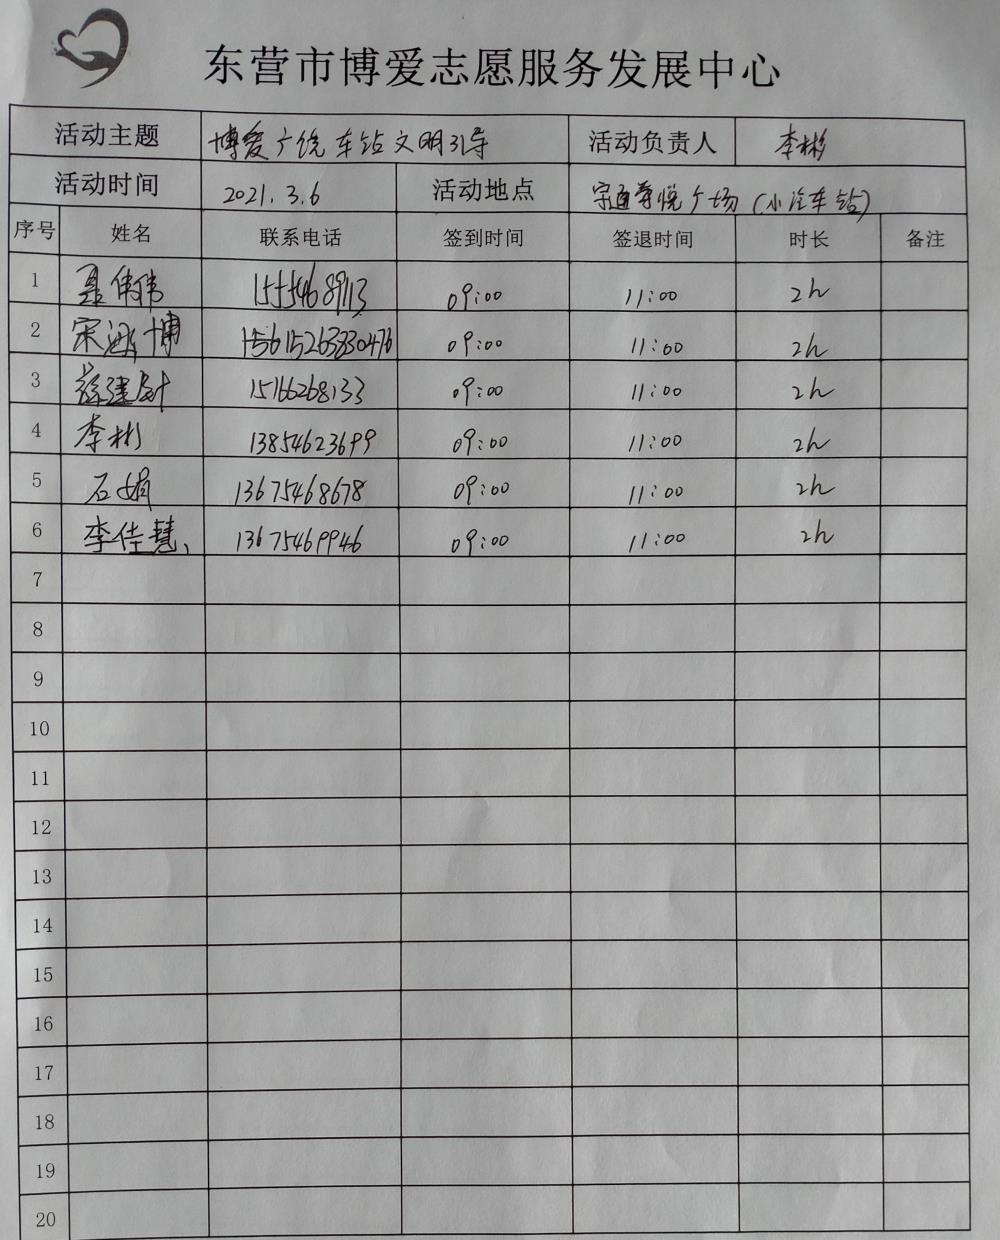 东营市博爱志愿服务发展中心
活动主题 博爱广饶车站文明引导 活动负责人 李彬
活动时间 2021.3.6 活动地点 悦广场(小汽车站)
序号 姓名 联系电话 签到时间 签退时间 时长 备注
1 聂伟伟 15554689113 09:00 11:00 2h
2 宋 博 09:00 11:00 2h
3 建 15166268133 09:00 11:00 2h
4 李彬 13854623699 09:00 11:00 2h
5 石娟 13675468678 09:00 11:00 2h
6 李佳慧 13675469946 09:00 11:00 2h
7
8
9
10
11
12
13
14
15
16
17
18
19
20